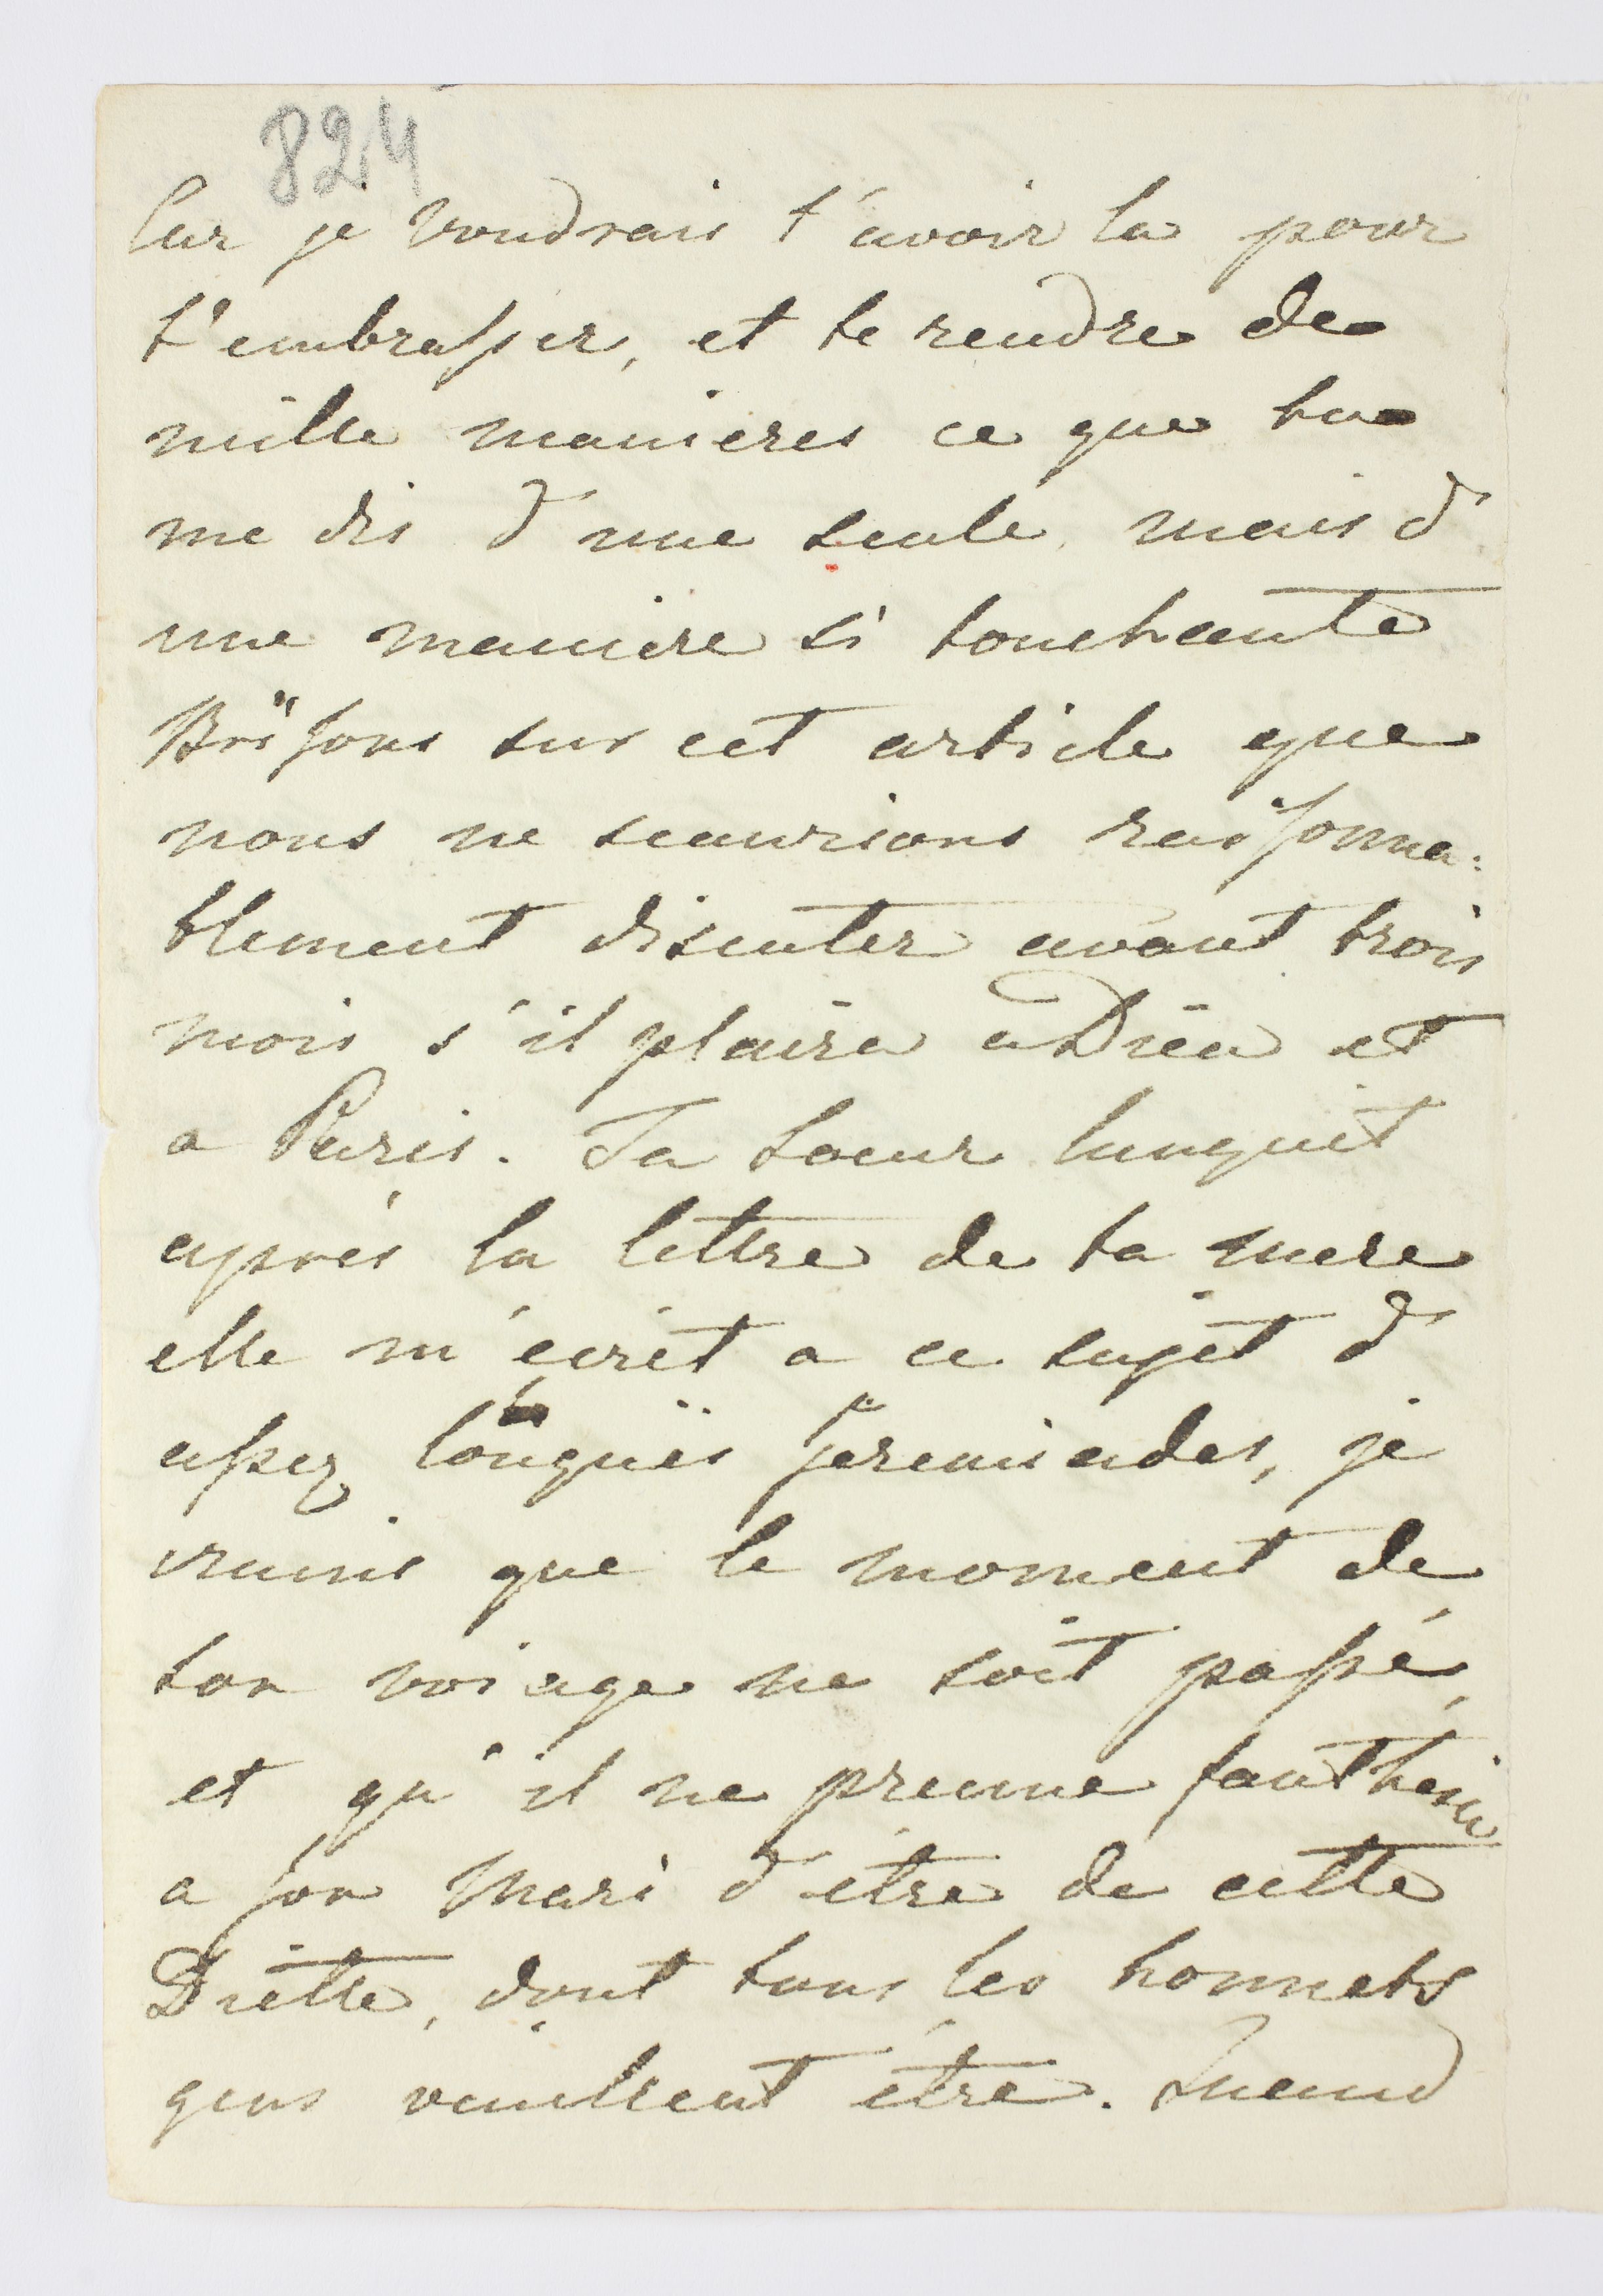 824
Car je voudrais t'avoir la pour
t'embrasser, et te rendre de
mille manieres ce que tu
me dis d'une seule, mais d'
une maniere si touchante
Brisons sur cet article que
nous ne scaurions raisonna:
blement discuter avant trois
mois s'il plaira a Dieu et
a Paris. Ta soeur languit
aprés la lettre de ta mere
elle m'ecrit a ce sujet d'
assez longues jeremiades, je
crains que le moment de
son voiage ne soit passé,
et qu'il ne prenne
a son Mari d'etre de cette
Diette, dont tous les honnets
gens veuillent etre. Quand